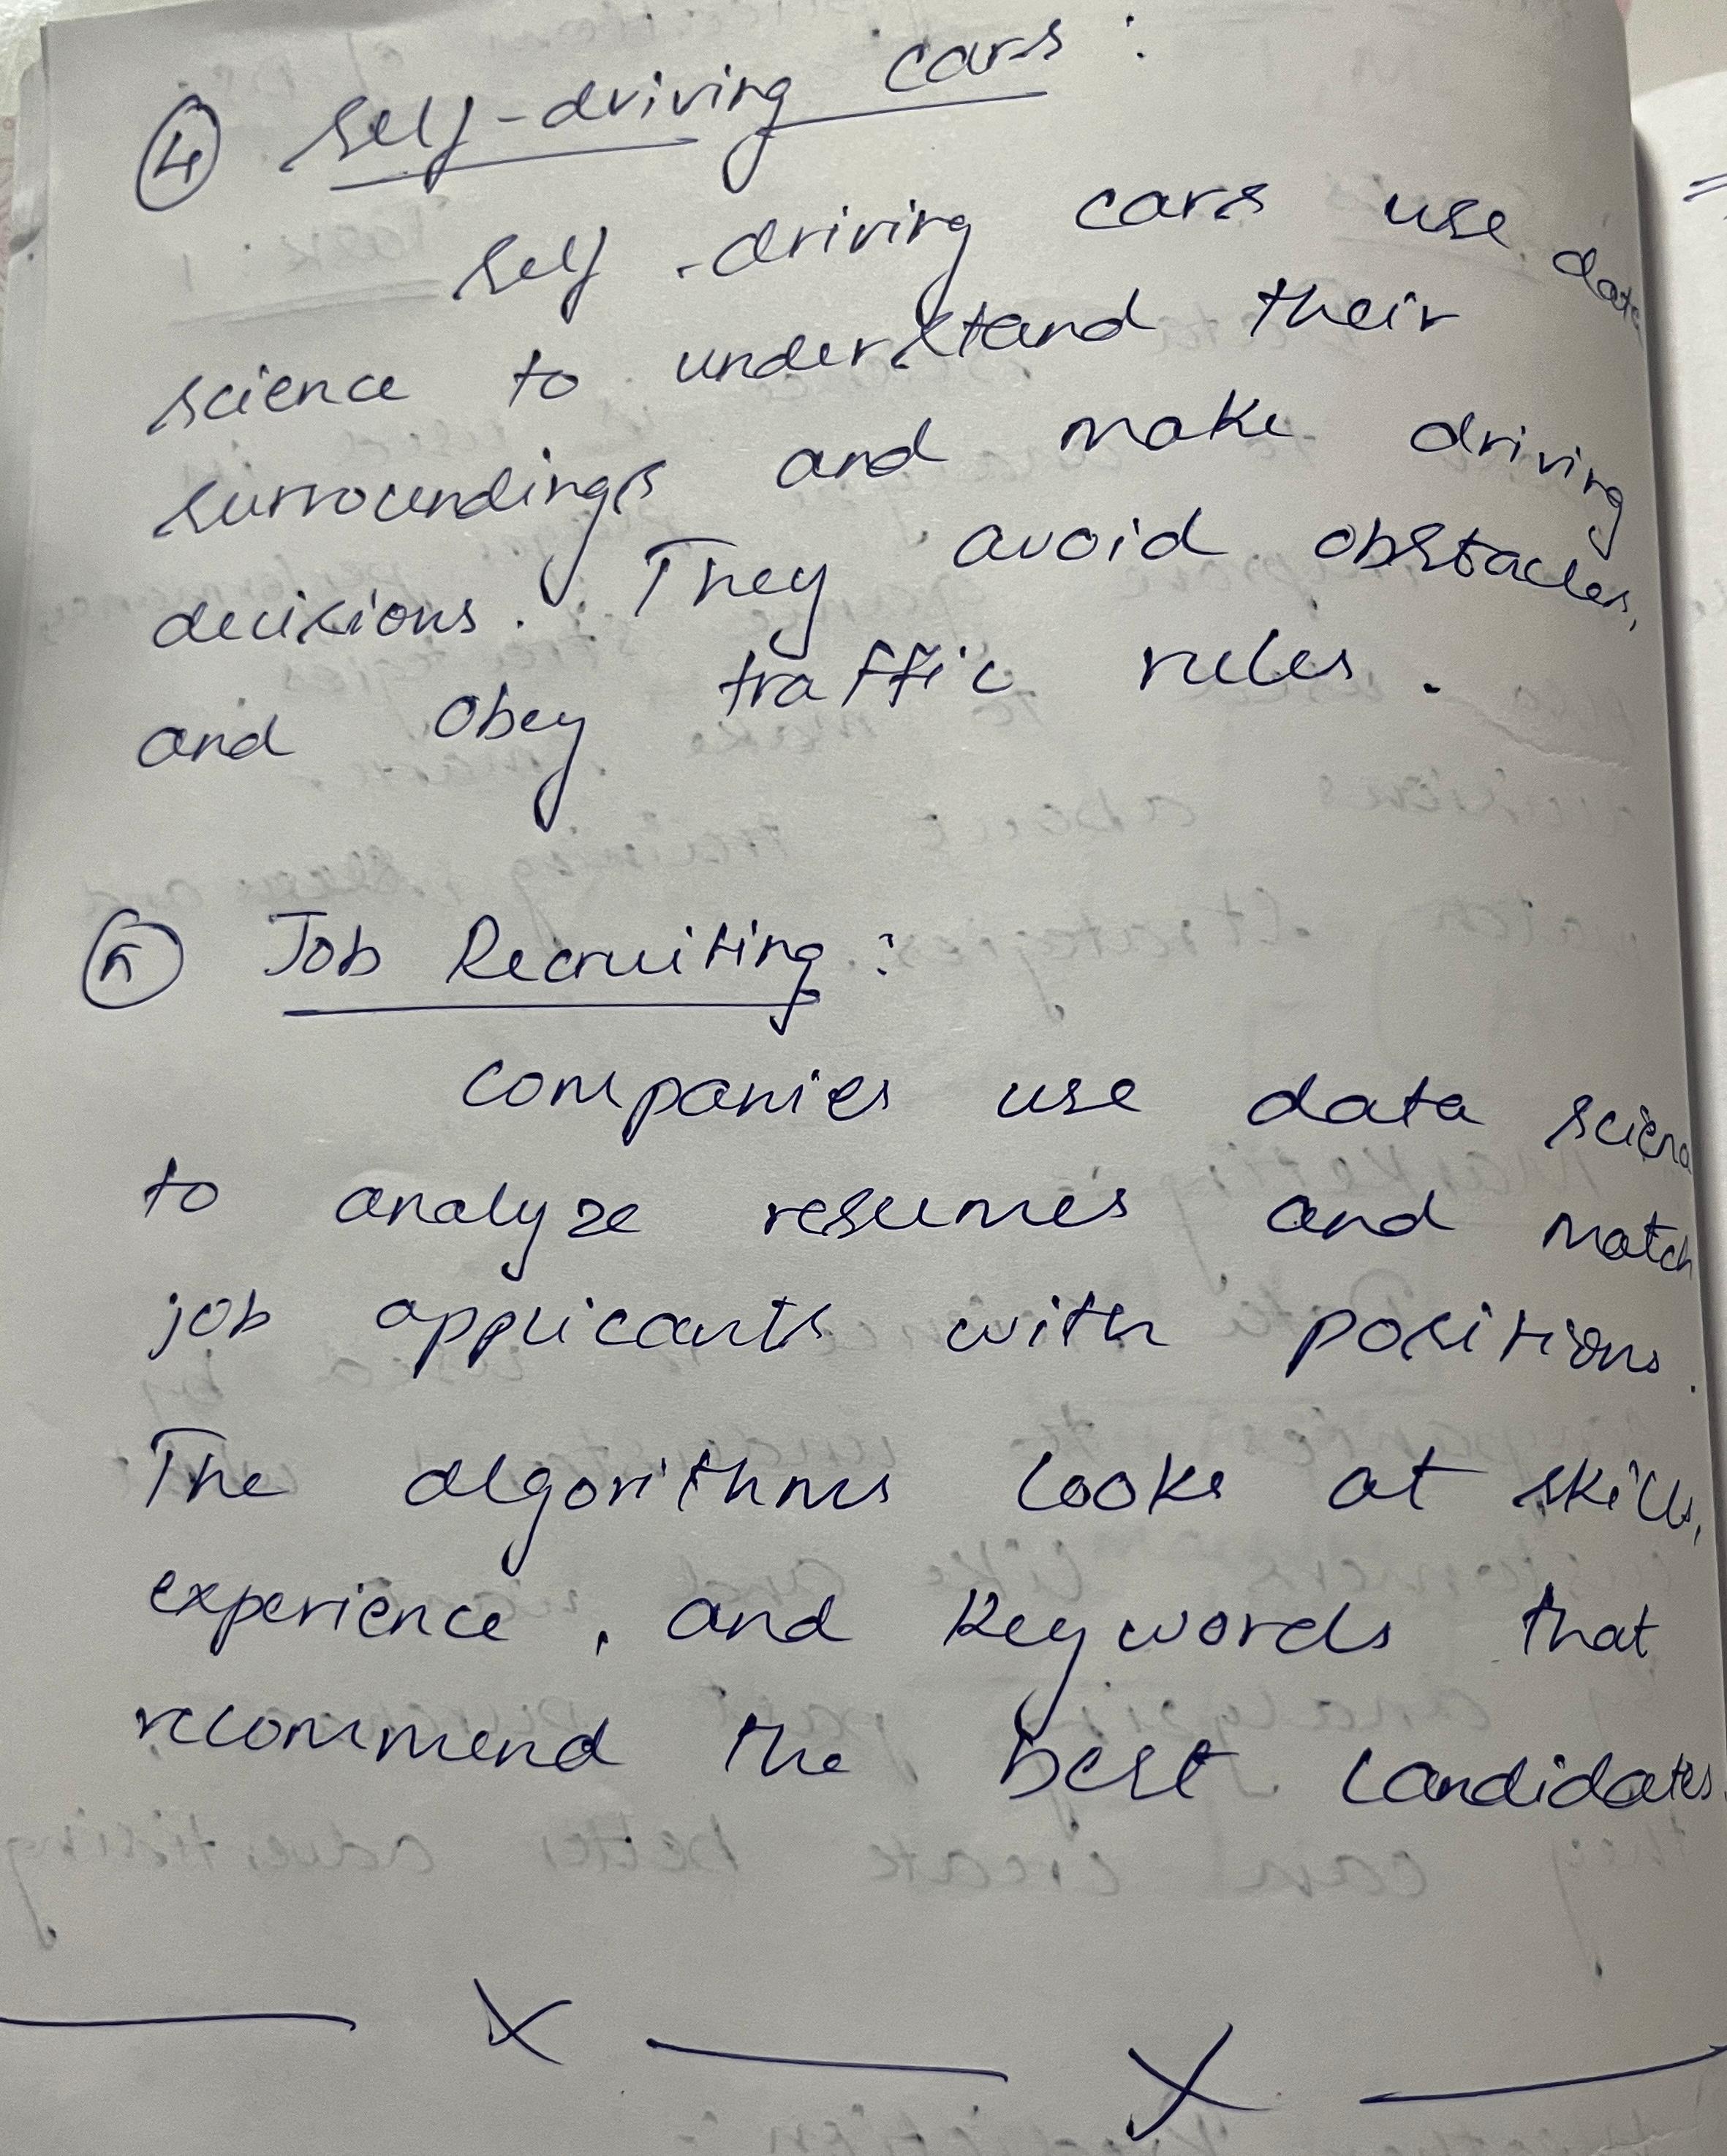 ④ Self-driving cars:
Self-driving cars use data
science to understand their
surroundings and make driving
decisions. They avoid obstacles,
and obey traffic rules.
⑤ Job Recruiting:
companies use data science
to analyze resumes and match
job applicants with positions.
The algorithms looks at skills,
experience, and keywords that
recommend the best candidates.
— X — X —